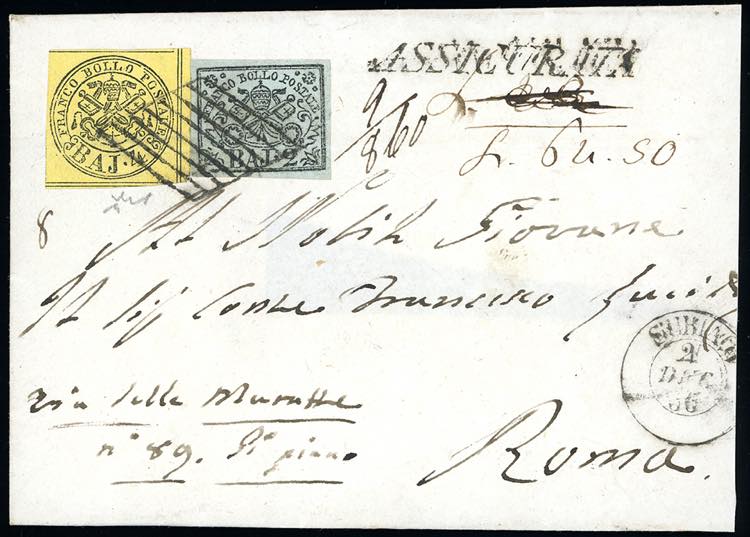 FRANCO BOLLO POSTALE
BAJ. 4
FRANCO BOLLO POSTALE
BAJ. 2
ASSICURATA
9/860
L. 64.50
8
All Nobile Giovane
Il Sig Conte Francesco
via delle Muratte
n° 89. P° piano
Roma.
SUBIACO
2
DEC
56